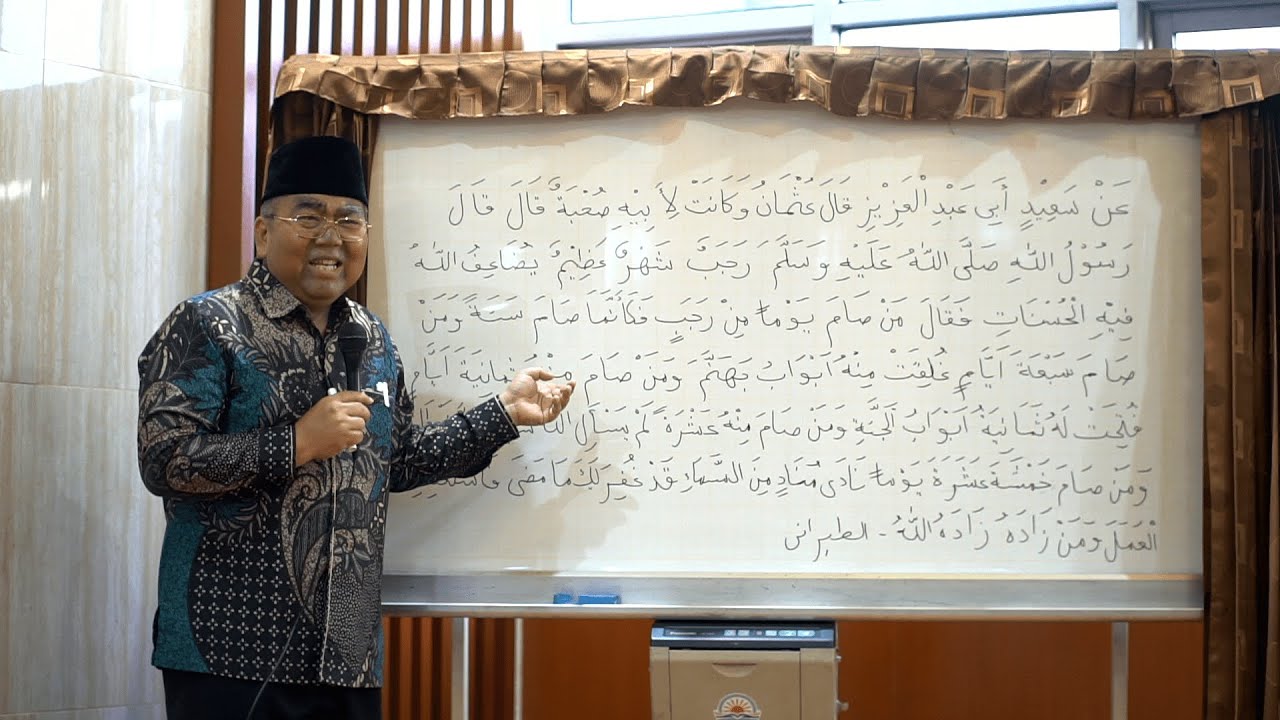 عَنْ سَعِيْدٍ أَبِي عَبْدِ الْعَزِيْزِ قَالَ عُثْمَانُ وَكَانَتْ لِأَبِيْهِ صُحْبَةٌ قَالَ قَالَ
رَسُوْلُ اللهِ صَلَّى اللهُ عَلَيْهِ وَسَلَّمَ رَجَبٌ شَهْرٌ عَظِيْمٌ يُضَاعِفُ اللهُ
فِيْهِ الْحُسَنَاتِ فَقَالَ مَنْ صَامَ يَوْمًا مِنْ رَجَبٍ فَكَأَنَّمَا صَامَ سَنَةً وَمَنْ
صَامَ سَبْعَةَ اَيَّامٍ غُلِقَتْ مِنْهُ اَبْوَابُ جَهَنَّمَ وَمَنْ صَامَ ثَمَانِيَةَ اَيَّامٍ
فُتِحَتْ لَهُ ثَمَانِيَةُ اَبْوَابُ الْجَنَّةِ وَمَنْ صَامَ مِنْهُ عَشْرَةً لَمْ يَسْأَلِ
وَمَنْ صَامَ خَمْسَةَ عَشَرَةَ يَوْمًا نَادَى مُنَادٍ مِنَ السَّمَاءِ قَدْ غُفِرَ لَكَ مَا مَضَى
الْعَمَلَ وَمَنْ زَادَهُ زَادَهُ اللهُ - الطبرانى
Panasonic